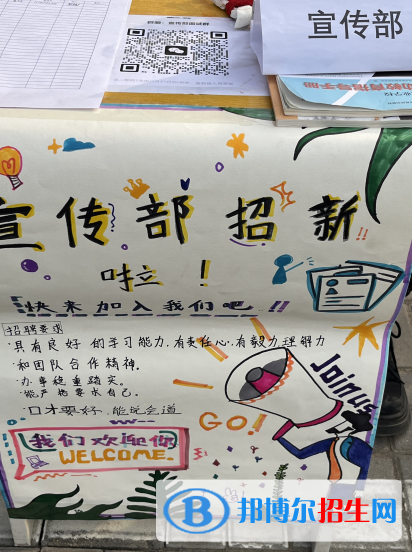 宣传部
宣传部招新
啦！
快来加入我们吧!!
招聘要求
·具有良好的学习能力,有责任心,有毅力理解力
·和团队合作精神.
·办事稳重踏实.
·能严格要求自己.
·口才要好,能说会道
GO!
Join us
我们欢迎你
WELCOME.
邦博尔招生网